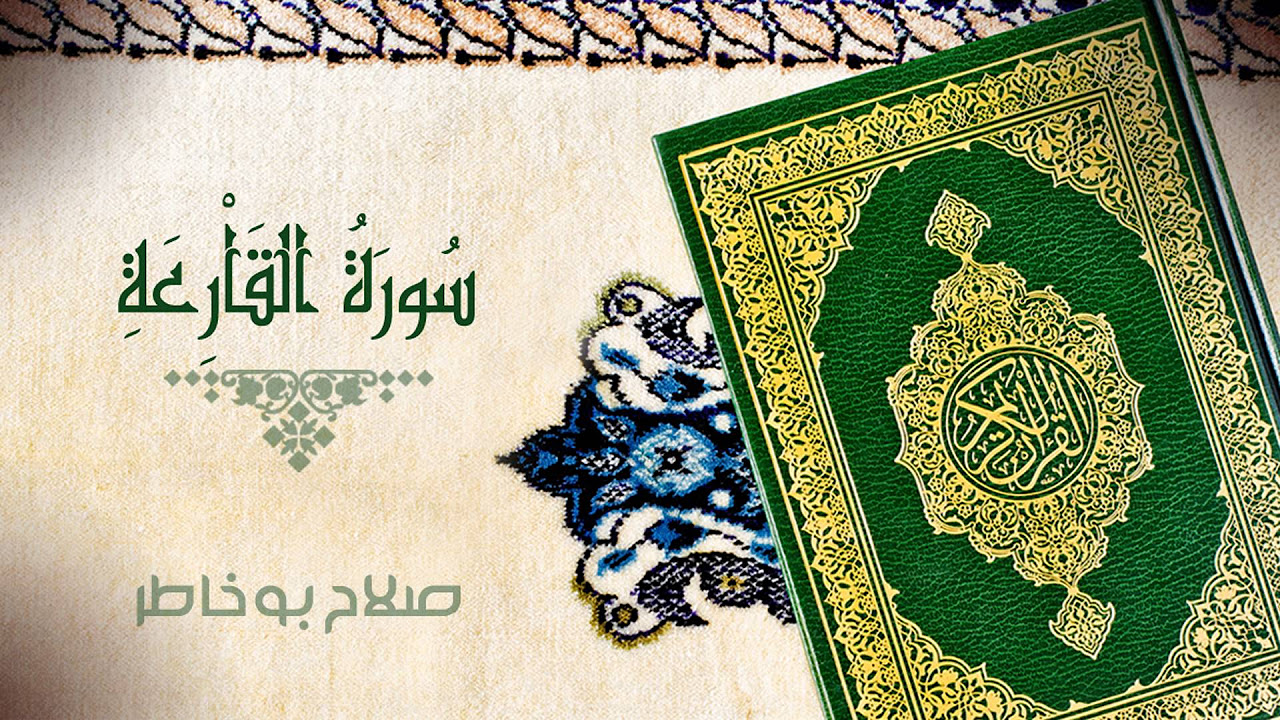 سُورَةُ الْقَارِعَةِ
صلاح بو خاطر
القرآن الكريم